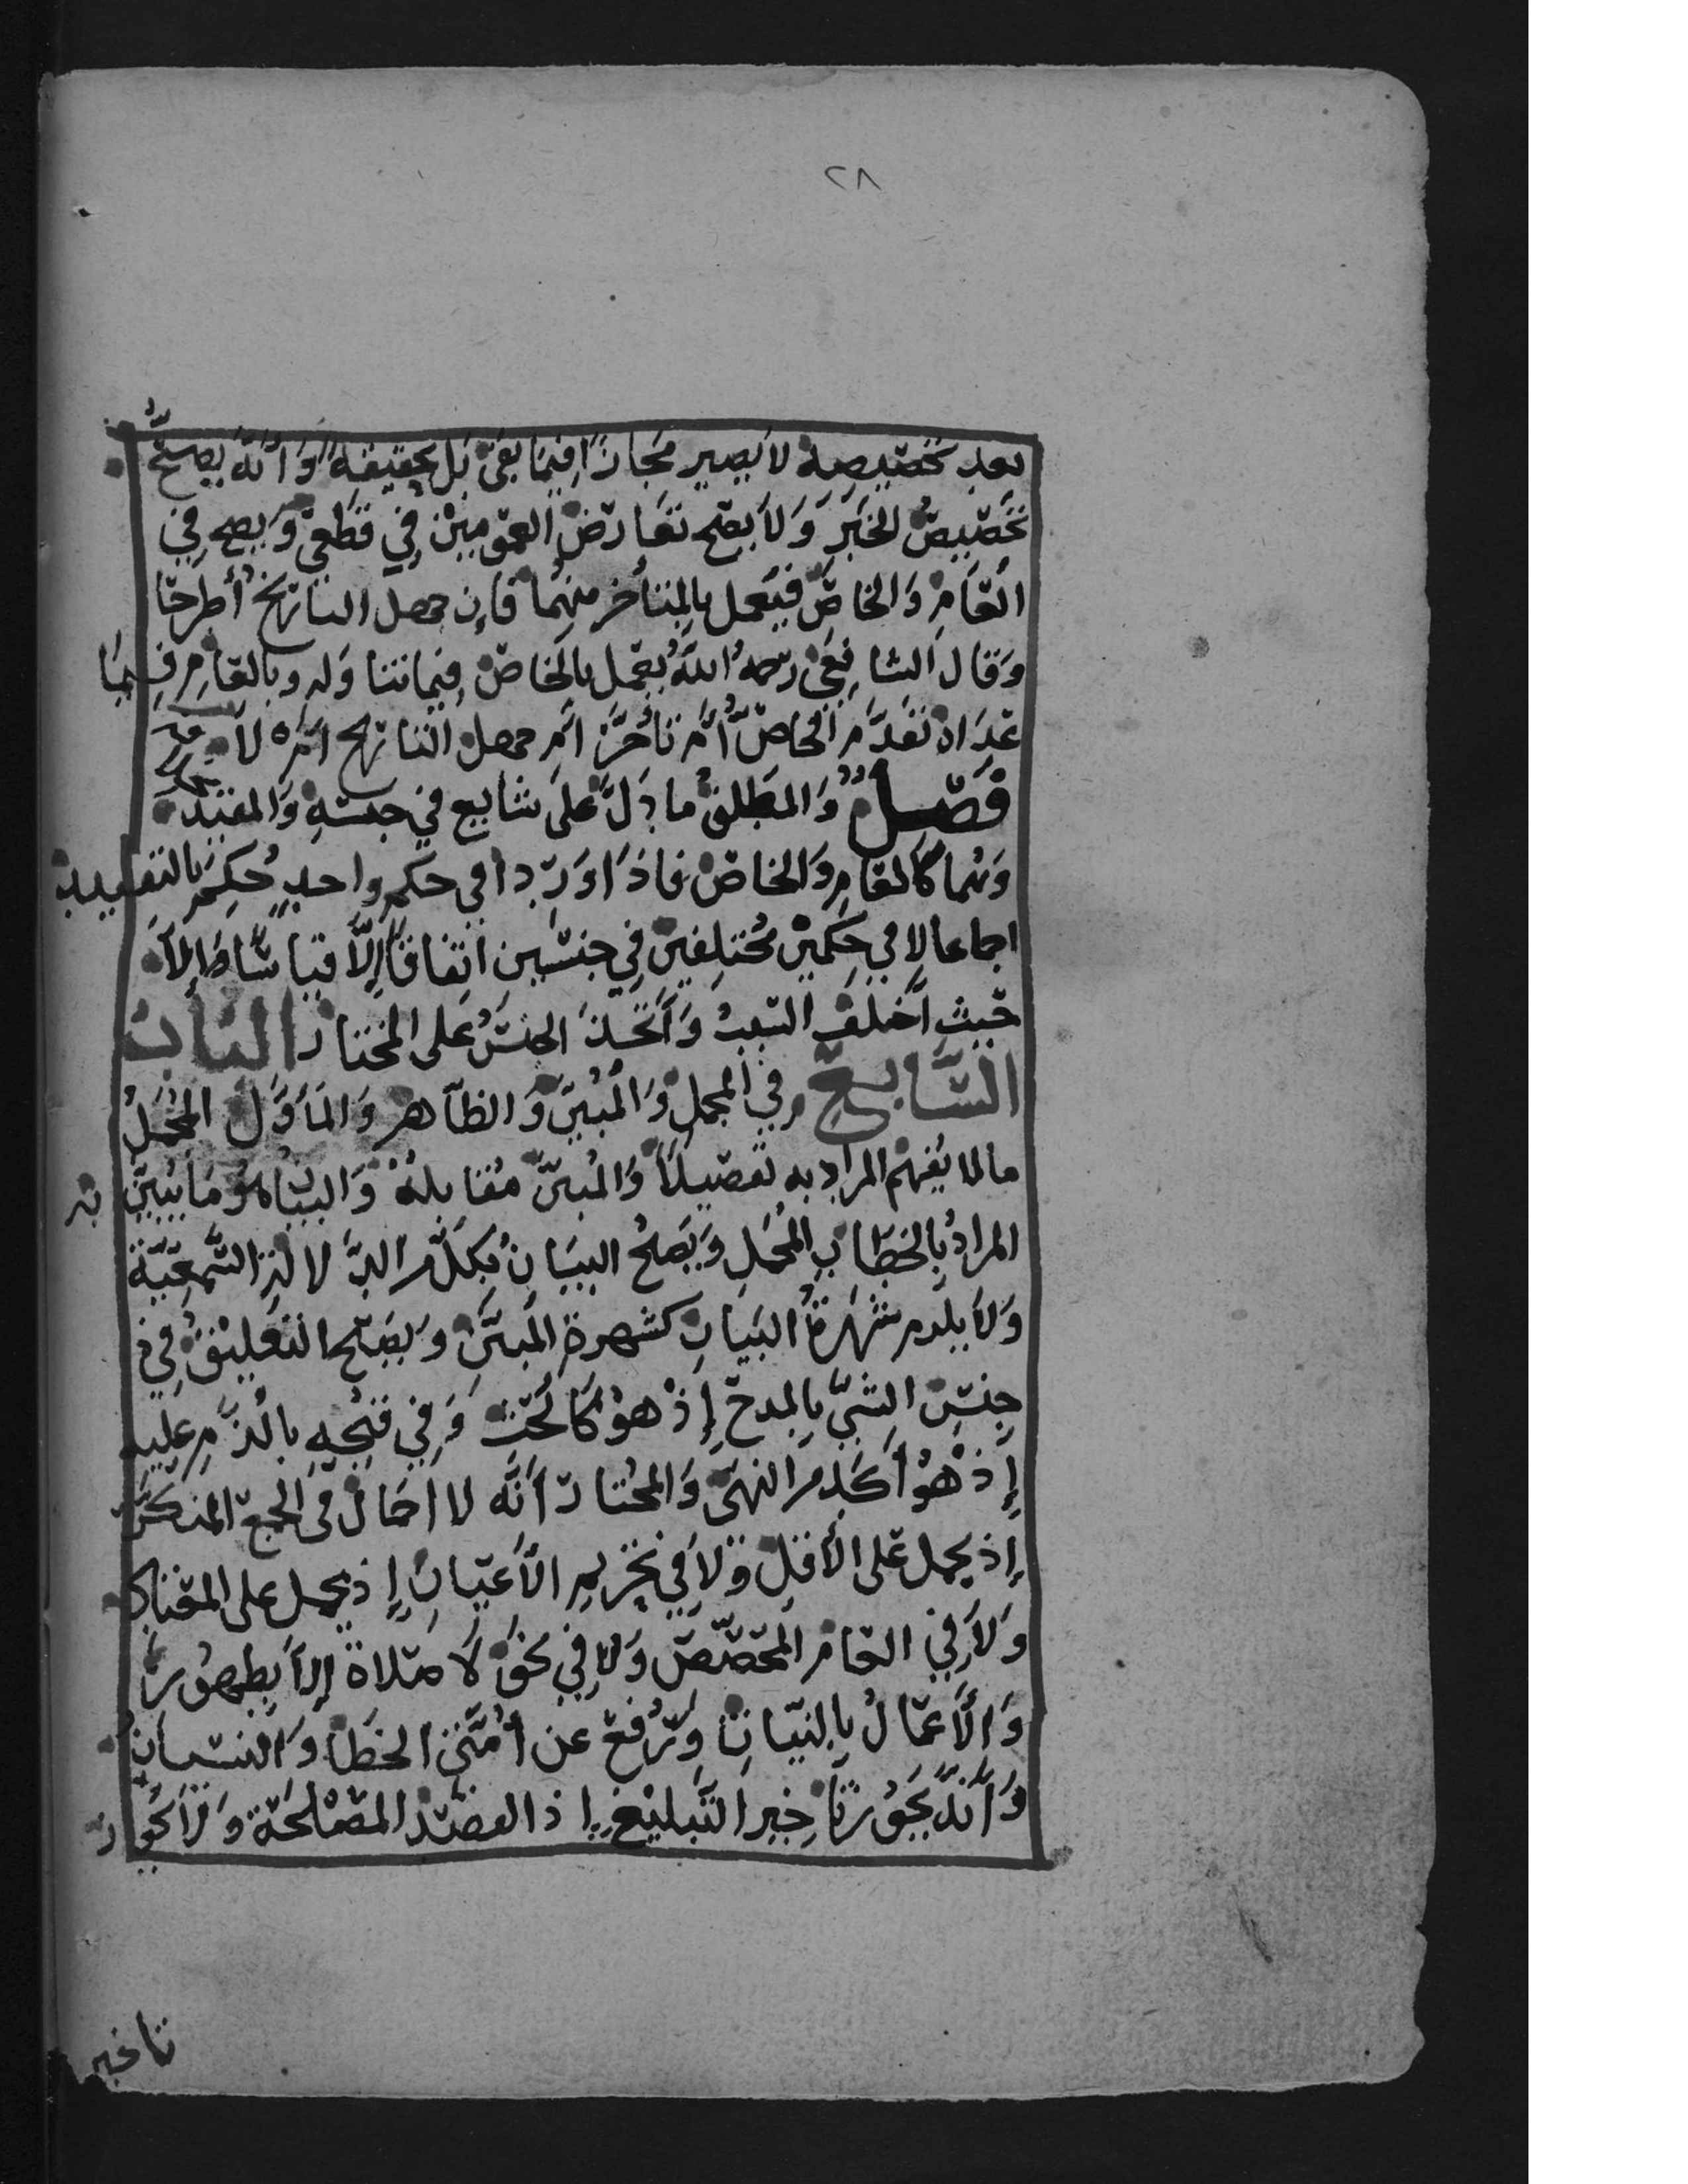 ٢٨
بعد تخصيصه لا يصير مجازًا فيما بقي بل حقيقة وأنه يصح
تخصيص الخبر ولا يصح تعارض العمومين في قطعي ويصح في
العام والخاص فيعمل بالمتأخر منهما فإن جهل التاريخ أطرحا
وقال الشافعي رحمه الله يعمل بالخاص فيما تناوله وبالعام فيما
عداه تقدم الخاص أم تأخر أم جهل التاريخ أم لا
فصل والمطلق ما دل على شايع في جنسه والمقيد
وهما كالعام والخاص فإذا وردا في حكم واحد حكم بالتقييد
إجماعا لا في حكمين مختلفين في جنسين اتفاقًا إلا قياسًا ولا
حيث اختلف السبب واتحد الجنس على المختار الباب
السابع في المجمل والمبين والظاهر والمأول المجمل
ما لا يفهم المراد به تفصيلًا والمبين مقابله والبيان هو ما يبين به
المراد بالخطاب المجمل ويصح البيان بكل من الدلالة السمعية
ولا يلزم شهرة البيان كشهرة المبين ويصح التعليق في
حسن الشي بالمدح إذ هو كالحث وفي قبحه بالذم عليه
إذ هو آكد من النهي والمختار أنه لا إجمال في الجمع المنكر
إذ يحمل على الأقل ولا في تحريم الأعيان إذ يحمل على المعتاد
ولا في العام المخصص ولا في نحو لا صلاة إلا بطهور
والأعمال بالنيات ورفع عن أمتي الخطأ والنسيان
وأنه يجوز تأخير التبليغ إذ القصد المصلحة ولا يجوز
تاخير